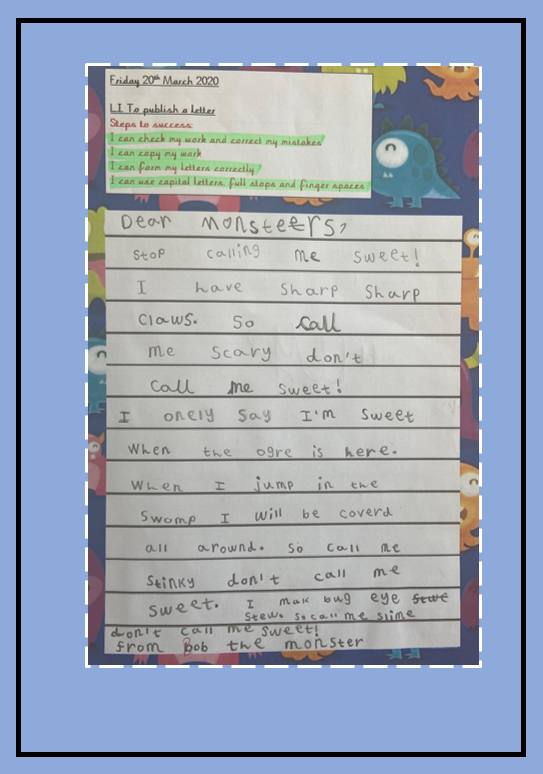 Friday 20th March 2020
LI To publish a letter
Steps to success:
I can check my work and correct my mistakes
I can copy my work
I can form my letters correctly
I can use capital letters, full stops and finger spaces
Dear monsteers,
Stop calling me sweet!
I have sharp sharp
claws. So call
me scary don't
call me sweet!
I onely say I'm sweet
when the ogre is here.
When I jump in the
swomp I will be coverd
all around. So call me
stinky don't call me
sweet. I mak bug eye stwe
stew. So call me slime
don't call me sweet!
from Bob the monster